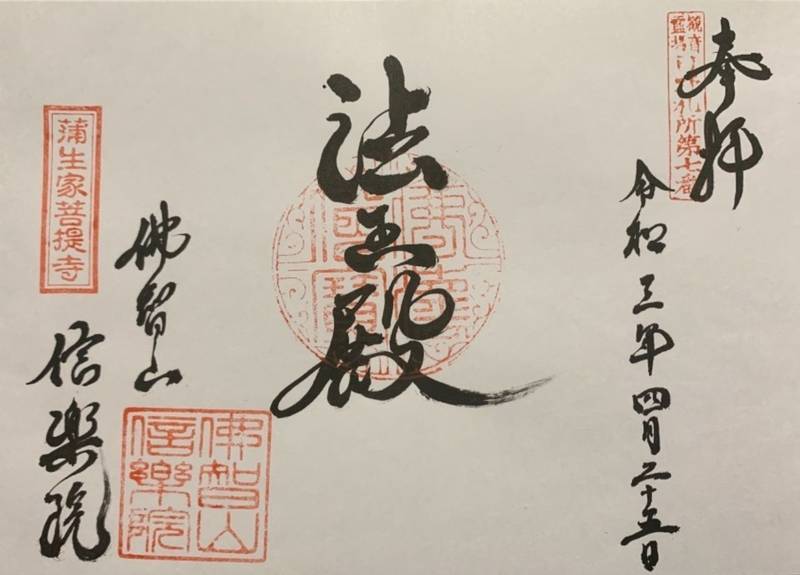 奉拝
観音
靈場
札所第七番
令和三年四月二十五日
法王殿
佛智山
信楽院
佛智山
信樂院
蒲生家菩提寺